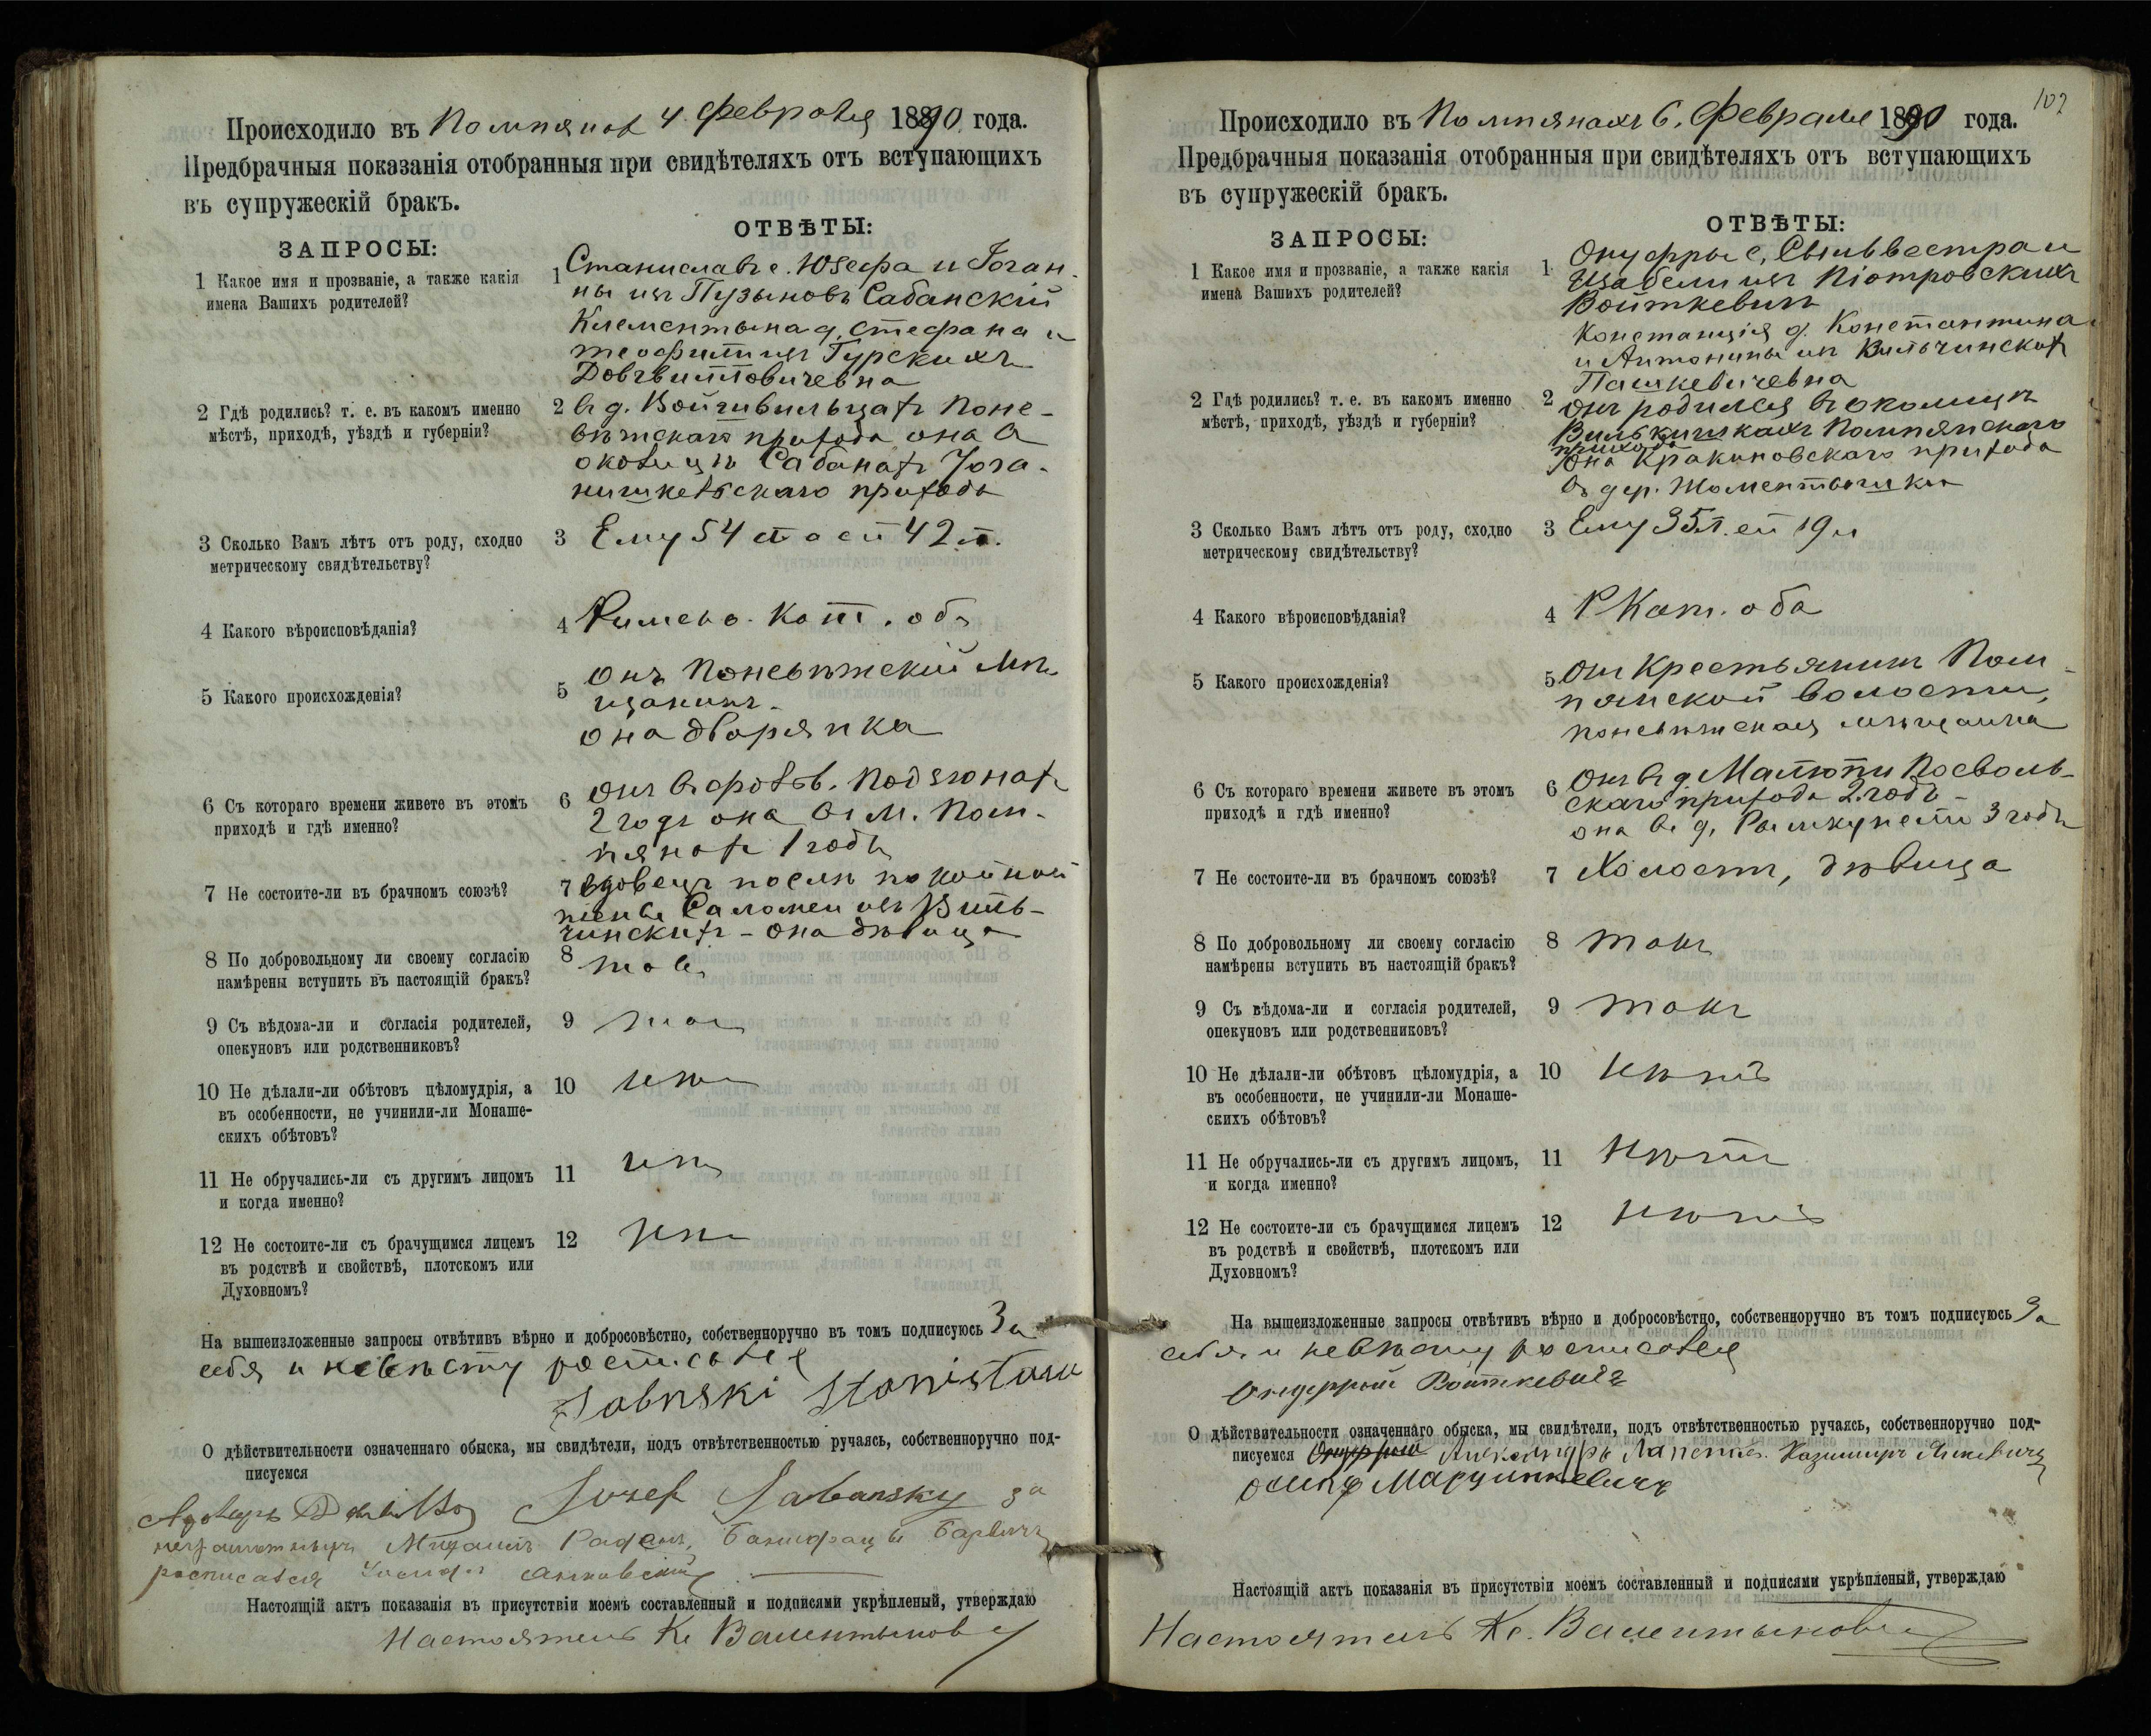 Происходило въ Помпянах 4 Февраля 1890 года.
Предбрачныя показанія отобранныя при свидѣтеляхъ отъ вступающихъ
въ супружескій бракъ.
ЗАПРОСЫ:
ОТВѢТЫ:
1 Какое имя и прозваніе, а также какія
имена Вашихъ родителей?
1 Станиславъ с. Юзефа и Іоган-
ны изъ Пузыновъ Сабанскій
Клементына д. Стефана и
Теофили изъ Гурскихъ
Довгвилловичевна
2 Гдѣ родились? т. е. въ какомъ именно
мѣстѣ, приходѣ, уѣздѣ и губерніи?
2 въ д. Поне-
вѣжскаго прихода она в
околицѣ Сабанахъ Іога-
нишкельскаго прихода
3 Сколько Вамъ лѣтъ отъ роду, сходно
метрическому свидѣтельству?
3 Ему 54 л а ей 42 л.
4 Какого вѣроисповѣданія?
4 Римско. Кат. оба
5 Какого происхожденія?
5 Онъ Поневѣжскій Мѣ-
щанинъ.
она дворянка
6 Съ котораго времени живете въ этомъ
приходѣ и гдѣ именно?
6 Онъ въ фольв. Подзюнахъ
2 года она въ м. Пом-
пянахъ 1 годъ
7 Не состоите-ли въ брачномъ союзѣ?
7 Вдовецъ послѣ покойной
жены Саломеи изъ Виль-
чинскихъ - она дѣвица
8 По добровольному ли своему согласію
намѣрены вступить въ настоящій бракъ?
8 такъ
9 Съ вѣдома-ли и согласія родителей,
опекуновъ или родственниковъ?
9 такъ
10 Не дѣлали-ли обѣтовъ цѣломудрія, а
въ особенности, не учинили-ли Монаше-
скихъ обѣтовъ?
10 нѣтъ
11 Не обручались-ли съ другимъ лицомъ
и когда именно?
11 нѣтъ
12 Не состоите-ли съ брачущимся лицемъ
въ родствѣ и свойствѣ, плотскомъ или
Духовномъ?
12 нѣтъ
На вышеизложенные запросы отвѣтивъ вѣрно и добросовѣстно, собственноручно въ томъ подписуюсь За
себя и невѣсту росписался
Sabnski Stanisław
О дѣйствительности означеннаго обыска, мы свидѣтели, подъ отвѣтственностью ручаясь, собственноручно под-
писуемся
Jozef Sabansky за
неграмотныхъ Михаилъ Бонифацы
росписался
Настоящій актъ показанія въ присутствіи моемъ составленный и подписями укрѣпленый, утверждаю
Настоятель Кс Валентынович
102
Происходило въ Помпянахъ 6. Февраля 1890 года.
Предбрачныя показанія отобранныя при свидѣтеляхъ отъ вступающихъ
въ супружескій бракъ.
ЗАПРОСЫ:
ОТВѢТЫ:
1 Какое имя и прозваніе, а также какія
имена Вашихъ родителей?
1 Онуфры с. Сыльвестра и
Изабели изъ Піотровскихъ
Войткевичъ
Констанція д. Константина
и Антонины из Вильчинскох
Пашкевичевна
2 Гдѣ родились? т. е. въ какомъ именно
мѣстѣ, приходѣ, уѣздѣ и губерніи?
2 Онъ родился въ околицѣ
Вилькишкахъ Помпянскаго
прихода
Она Кракиновскаго прихода
въ дер.
3 Сколько Вамъ лѣтъ отъ роду, сходно
метрическому свидѣтельству?
3 Ему 35 л. ей 19 л
4 Какого вѣроисповѣданія?
4 Р Кат. оба
5 Какого происхожденія?
5 Онъ Крестьянинъ Пом-
пянской волости,
поневѣжская мѣщанка
6 Съ котораго времени живете въ этомъ
приходѣ и гдѣ именно?
6 Онъ въ д Посволь-
скаго прихода 2. года
она въ д. 3 года
7 Не состоите-ли въ брачномъ союзѣ?
7 Холостъ, дѣвица
8 По добровольному ли своему согласію
намѣрены вступить въ настоящій бракъ?
8 такъ
9 Съ вѣдома-ли и согласія родителей,
опекуновъ или родственниковъ?
9 такъ
10 Не дѣлали-ли обѣтовъ цѣломудрія, а
въ особенности, не учинили-ли Монаше-
скихъ обѣтовъ?
10 Нѣтъ
11 Не обручались-ли съ другимъ лицомъ,
и когда именно?
11 Нѣтъ
12 Не состоите-ли съ брачущимся лицемъ
въ родствѣ и свойствѣ, плотскомъ или
Духовномъ?
12 Нѣтъ
На вышеизложенные запросы отвѣтивъ вѣрно и добросовѣстно, собственноручно въ томъ подписуюсь За
себя и невѣсту росписался
Онуфрый Войткевичъ
О дѣйствительности означеннаго обыска, мы свидѣтели, подъ отвѣтственностью ручаясь, собственноручно под-
писуемся Казимиръ
Осипъ Марцинкевичъ
Настоящій актъ показанія въ присутствіи моемъ составленный и подписями укрѣпленый, утверждаю
Настоятель Кс. Валентынович